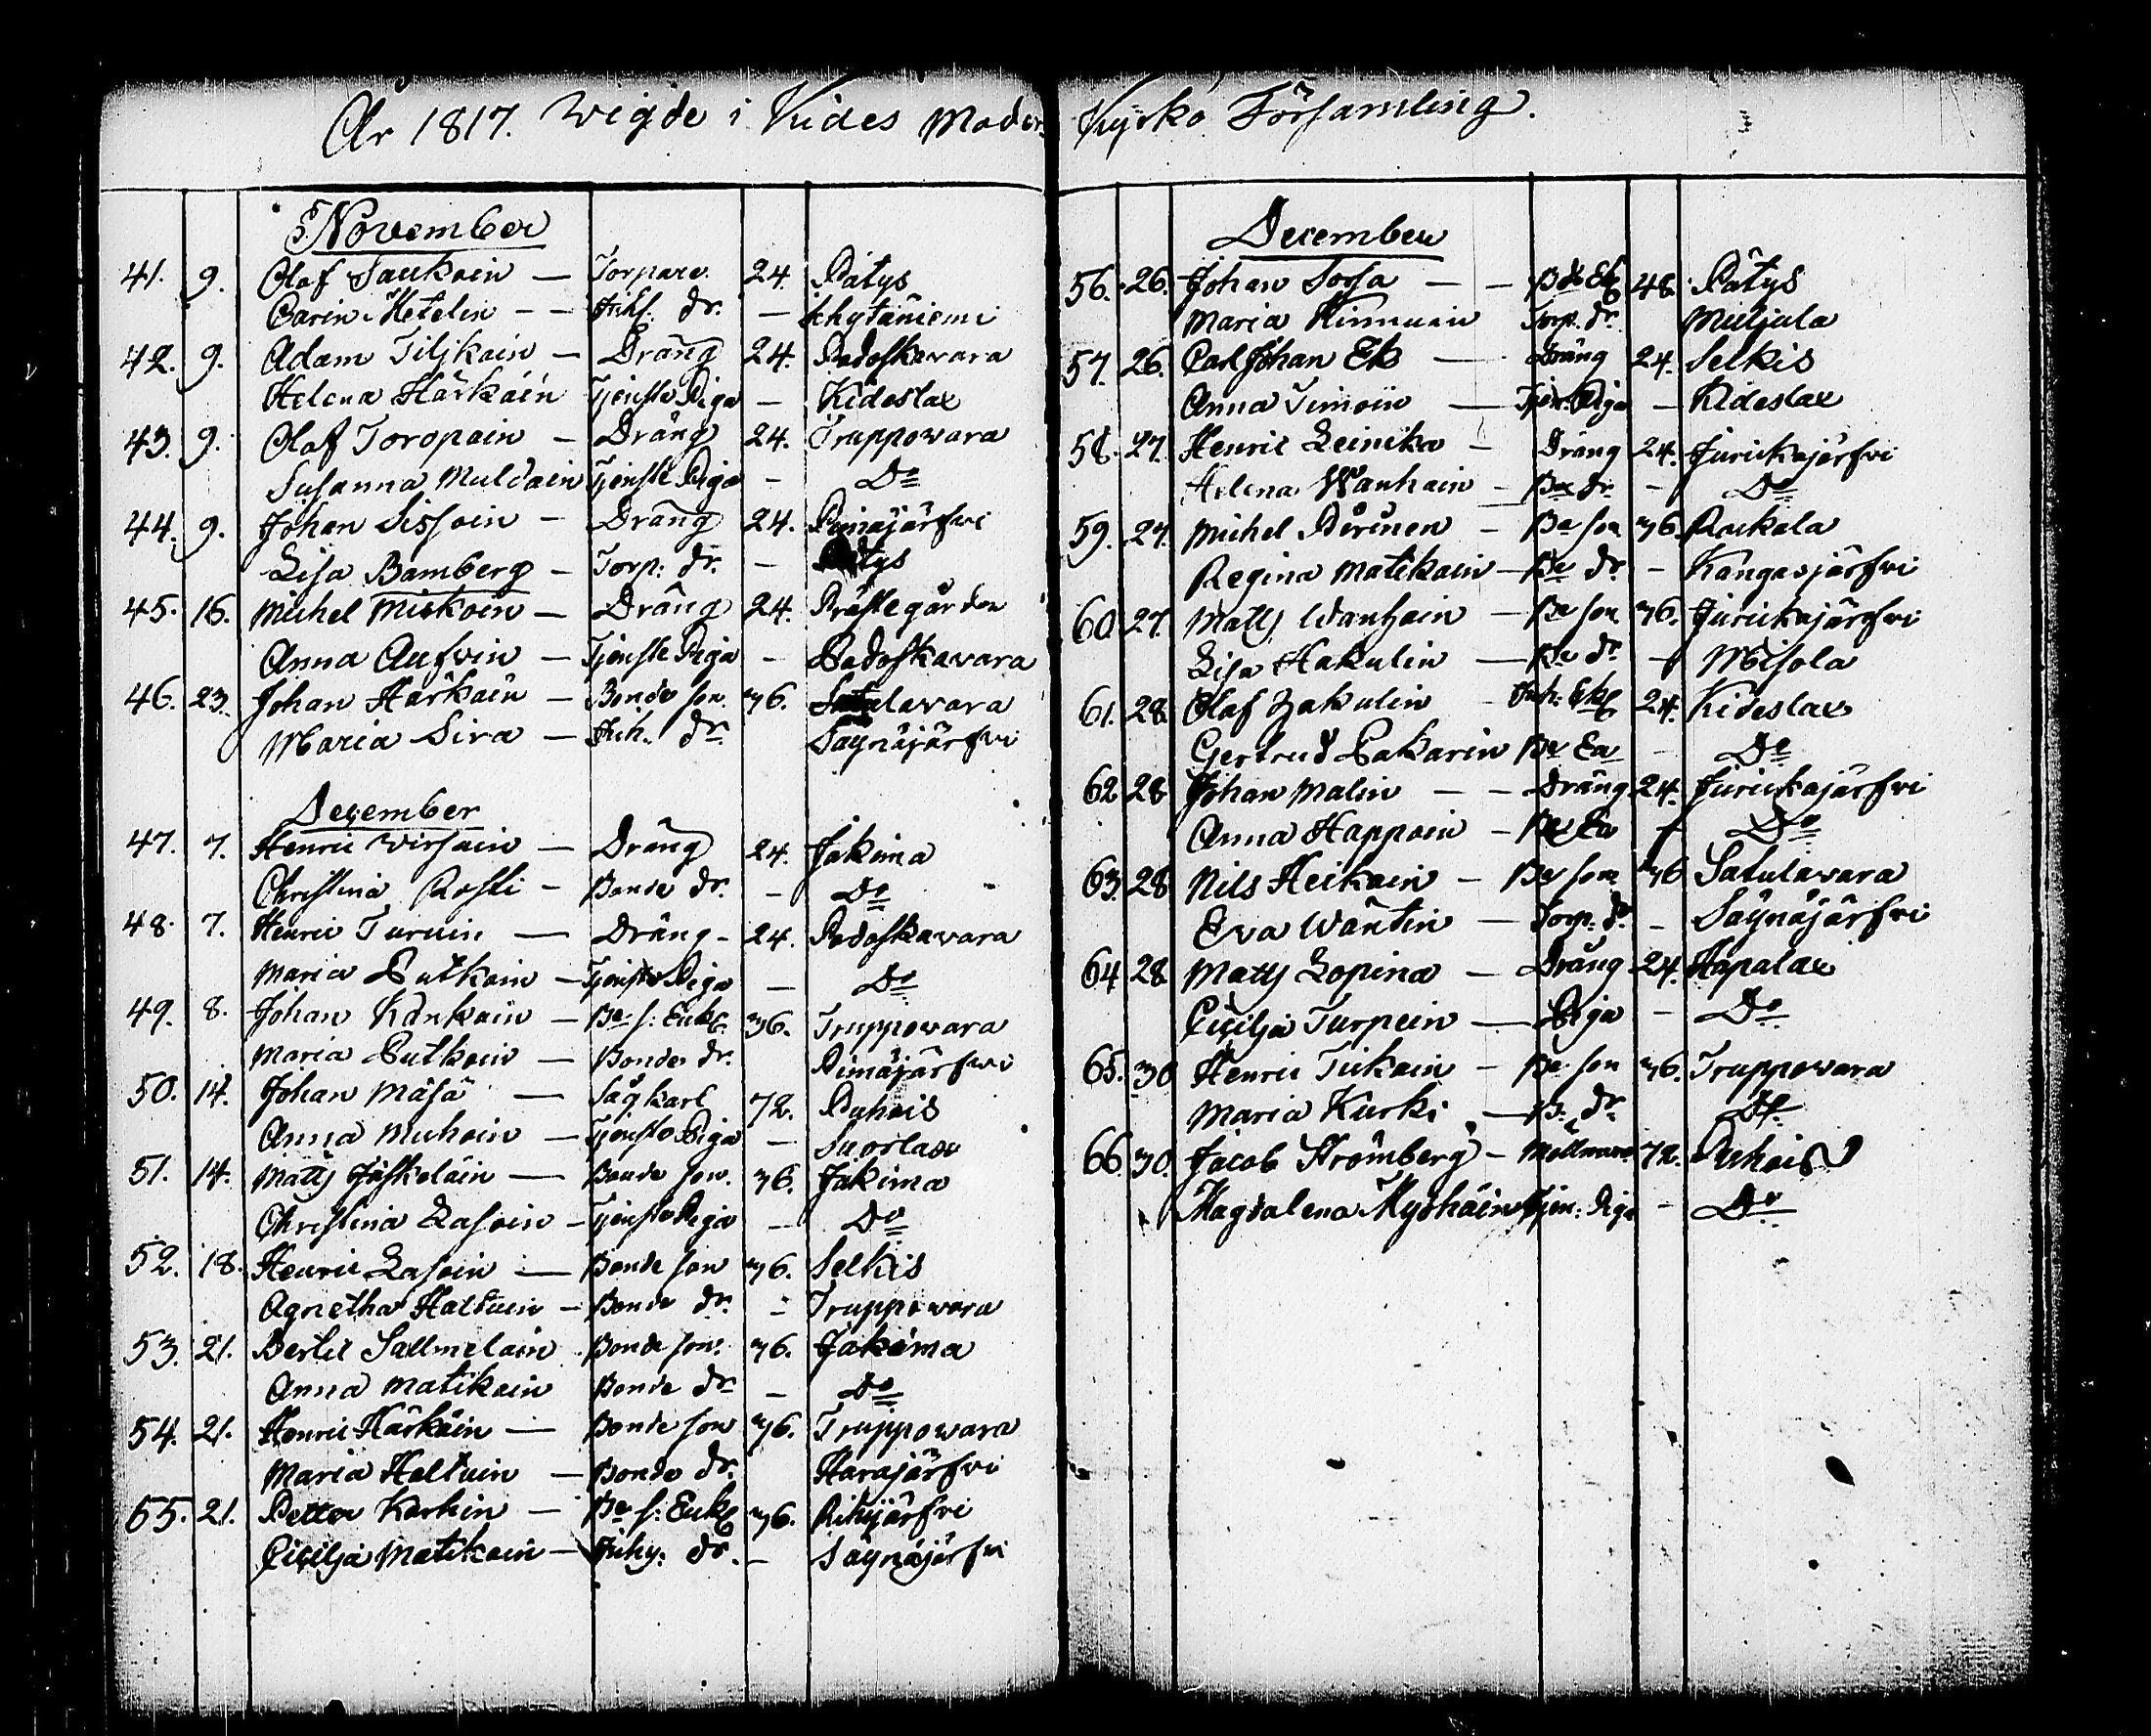 År 1817. Wigde i Kides Moder Kyrko Församling.
November
41. 9. Olof Saukoin — Torpare 24. Pätys
Carin Hetelin — — Inh: dr. — Kytäniemi
42. 9. Adam Tiljkain — Dräng 24. Podoskavara
Helena Härkäin Tjenste Piga — Kideslax
43. 9. Olof Toropain — Dräng 24. Truppowara
Susanna Muldain Tjenste Piga — Do
44. 9. Johan Sissoin — Dräng 24. Pimäjärfvi
Lisa Bamberg — Torp: dr. — Pätys
45. 16. Michel Miskoin — Dräng 24. Prästegården
Anna Aufvin — Tjenste Piga — Podoskavara
46. 23. Johan Härkäin — Bonde son. 36. Satulavara
Maria Sira — Inh. dr. Säynäjärfvi
December
47. 7. Henric Wirsuin — Dräng 24. Jakima
Christina Rosti — Bonde dr. — Do
48. 7. Henric Turuin — Dräng — 24. Podoskavara
Maria Putkoin — Tjenste Piga — Do
49. 8. Johan Känkäin — Be s: Enkl. 36. Truppowara
Maria Putkoin — Bonde dr. Pimäjärfvi
50. 14. Johan Mäsä — Sågkarl 72. Puhois
Anna Muhoin — Tjenste Piga — Suorlax
51. 14. Matts Jäskeläin — Bonde son. 36. Jakima
Christina Lasoin — Tjenste Piga — Do
52. 18. Henric Lasoin — Bonde son 36. Selkis
Agnetha Hattuin — Bonde dr. — Truppowara
53. 21. Bertil Sallmelain Bonde son. 36. Jakima
Anna Matikain Bonde dr — Do
54. 21. Henric Härkäin — Bonde son 36. Truppowara
Maria Haltuin — Bonde dr. Harajärfvi
55. 21. Petter Karhin — Be s: Enkl 36. Rihijärfvi
Cicilja Matikain — Inhy: dr. — Säynäjärfvi
December
56. 26. Johan Sosa — — Bde Ekl 48. Pätys
Maria Kinnuin Torp. dr. Muljula
57. 26. Carl Johan Ek — Dräng 24. Selkis
Anna Timoin — Tjen. Piga — Kideslax
58. 27. Henric Leinika — Dräng 24. Jurickajärfvi
Helena Wanhain — Be dr — Do
59. 27. Michel Pirinen — Be son 36. Rockala
Regina Matikain — Be dr — Kangasjärfvi
60 27. Matts Wanhain — Be son 36. Jurickajärfvi
Lisa Hakulin — Be dr. — Misola
61. 28. Olof Hakulin — Inh: Ekl 24. Kideslax
Gertrud Pakarin Be Ea — Do
62 28 Johan Malin — — Dräng 24. Jurickajärfvi
Anna Happoin — Be Ea — Do
63. 28 Nils Heikain — Be son 36 Satulawara
Eva Wäntin — Torp: dr. — Säynäjärfvi
64 28 Matts Lopina — Dräng 24. Hapalax
Cicilja Turpein — Piga — Do
65. 30 Henric Tiikain — Be son 36. Truppowara
Maria Kurki — B: dr. Do
66 30. Jacob Strömberg — Möllnare 72. Puhois
Magdalena Myöhäin Tjen: Piga — Do